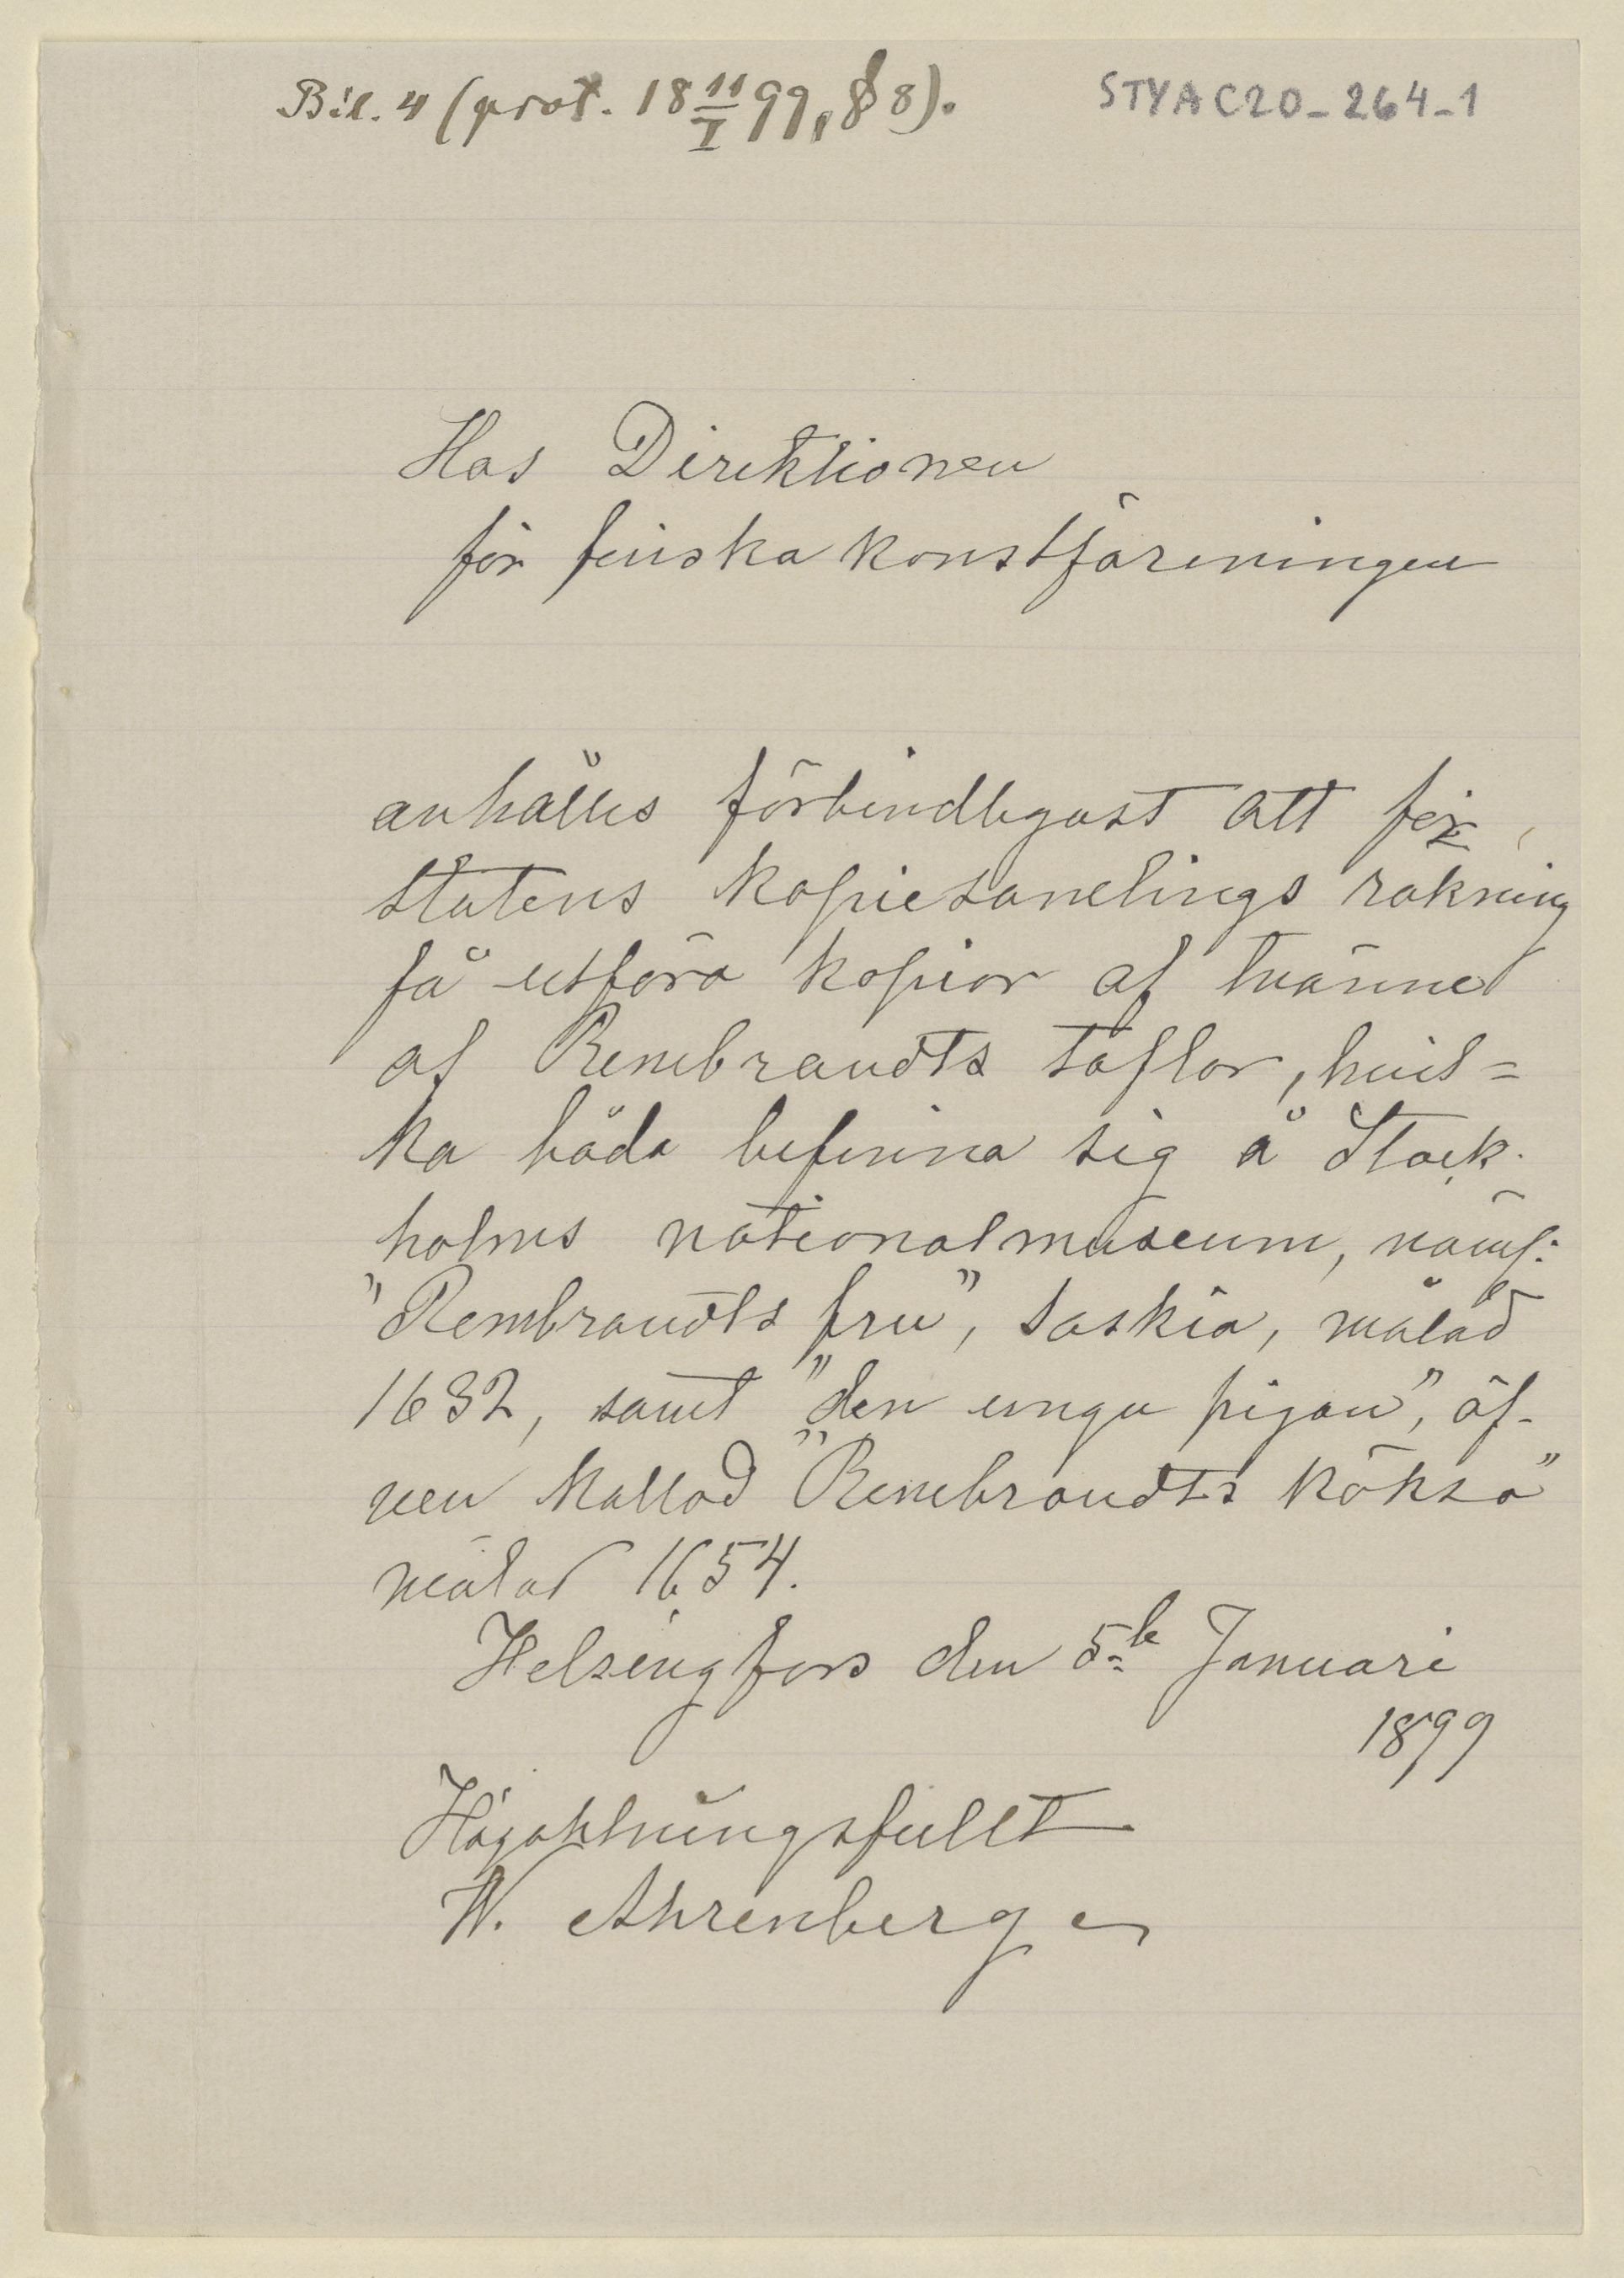 Bil. 4 (prot. 18 11/I 99, § 8).
STYA C20_264_1
Hos Direktionen
för finska konstföreningen
anhålles förbindligast att för
statens kopiesamlings räkning
få utföra kopior af tvänne
af Rembrandts taflor, hvil=
ka båda befinna sig å Stock-
holms nationalmuseum, näml:
"Rembrandts fru", Saskia, målad
1632, samt "den unga pigan", äf-
ven kallad "Rembrandts köksa"
målad 1654.
Helsingfors den 5te Januari
1899
Högaktningsfullt
W. Ahrenberg